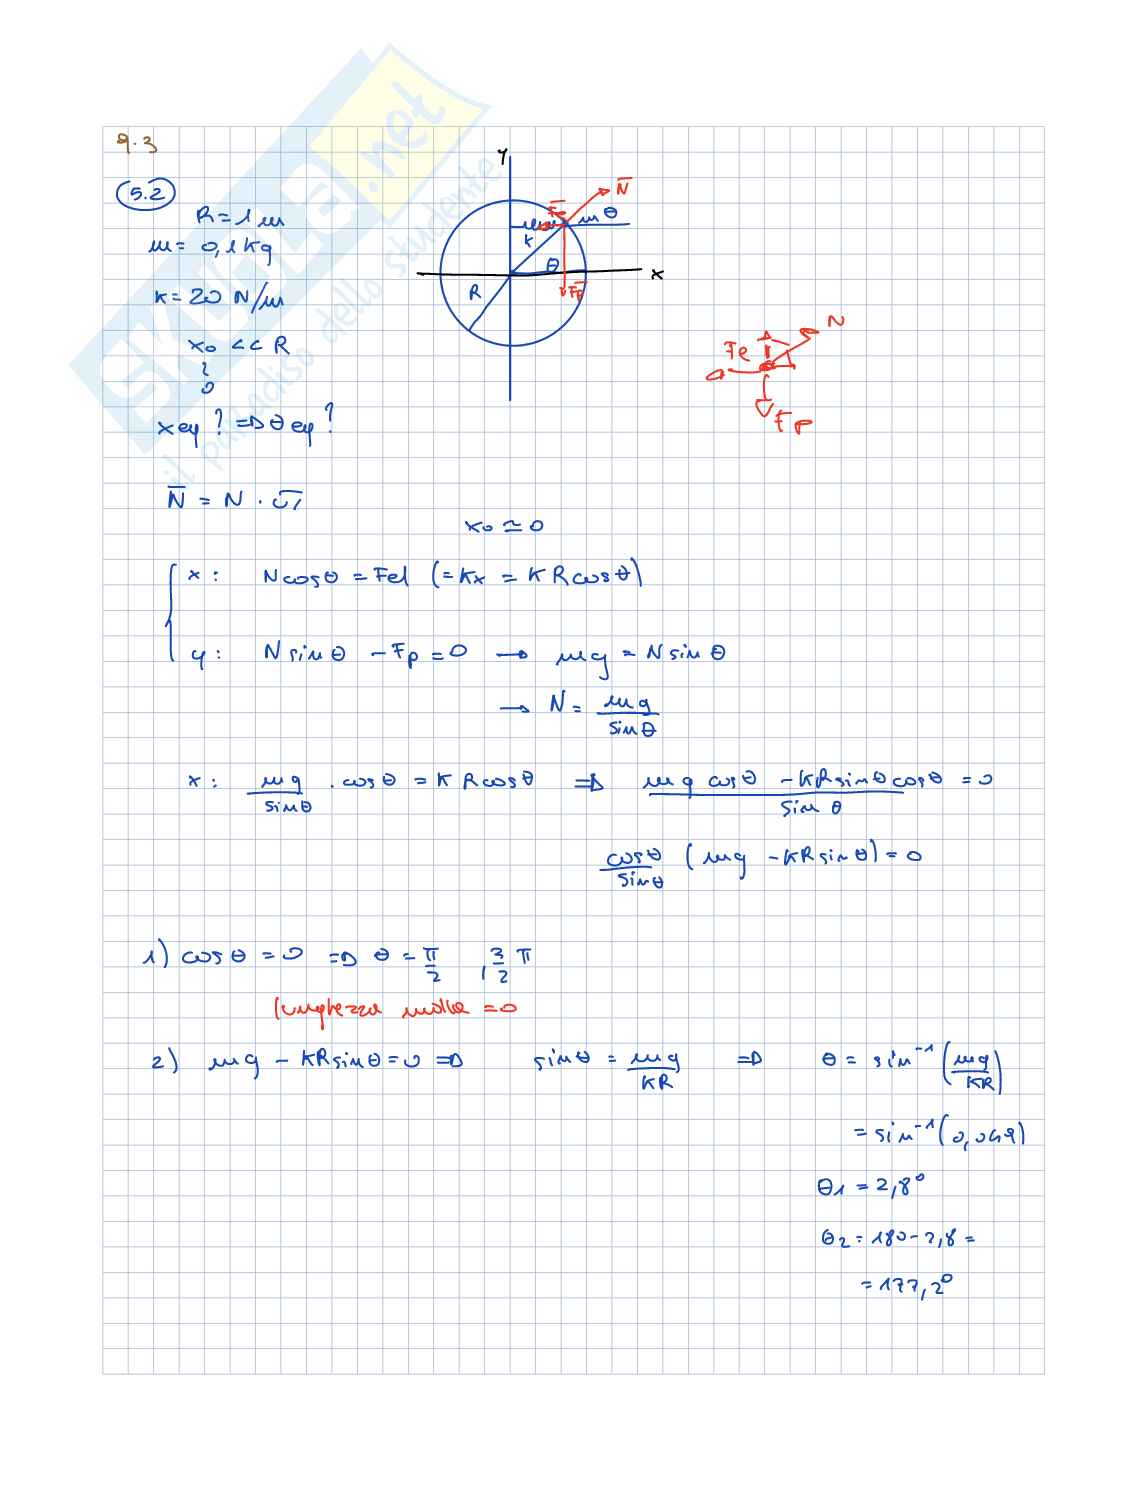 9.3
5.2
R = 1 m
m = 0,1 kg
K = 20 N/m
x0 << R
≀
0
x eq ? ⇒ θ eq ?
y
N̅
m θ
K
θ
x
R
Fp
N
Fe
Fp
N̅ = N · u̅r
x0 ≃ 0
x: N cosθ = Fel (= Kx = K R cosθ)
y: N sinθ - Fp = 0 → mg = N sinθ
→ N = mg / sinθ
x: mg / sinθ . cosθ = K R cosθ ⇒ mg cosθ - KR sinθ cosθ / sin θ = 0
cosθ / sinθ (mg - KR sinθ) = 0
1) cosθ = 0 ⇒ θ = π/2 , 3/2 π
lunghezza molla = 0
2) mg - KR sinθ = 0 ⇒ sinθ = mg / KR ⇒ θ = sin⁻¹ (mg / KR)
= sin⁻¹ (0,049)
θ1 = 2,8°
θ2 = 180 - 2,8 =
= 177,2°
SKUOLA.net
il paradiso dello studente